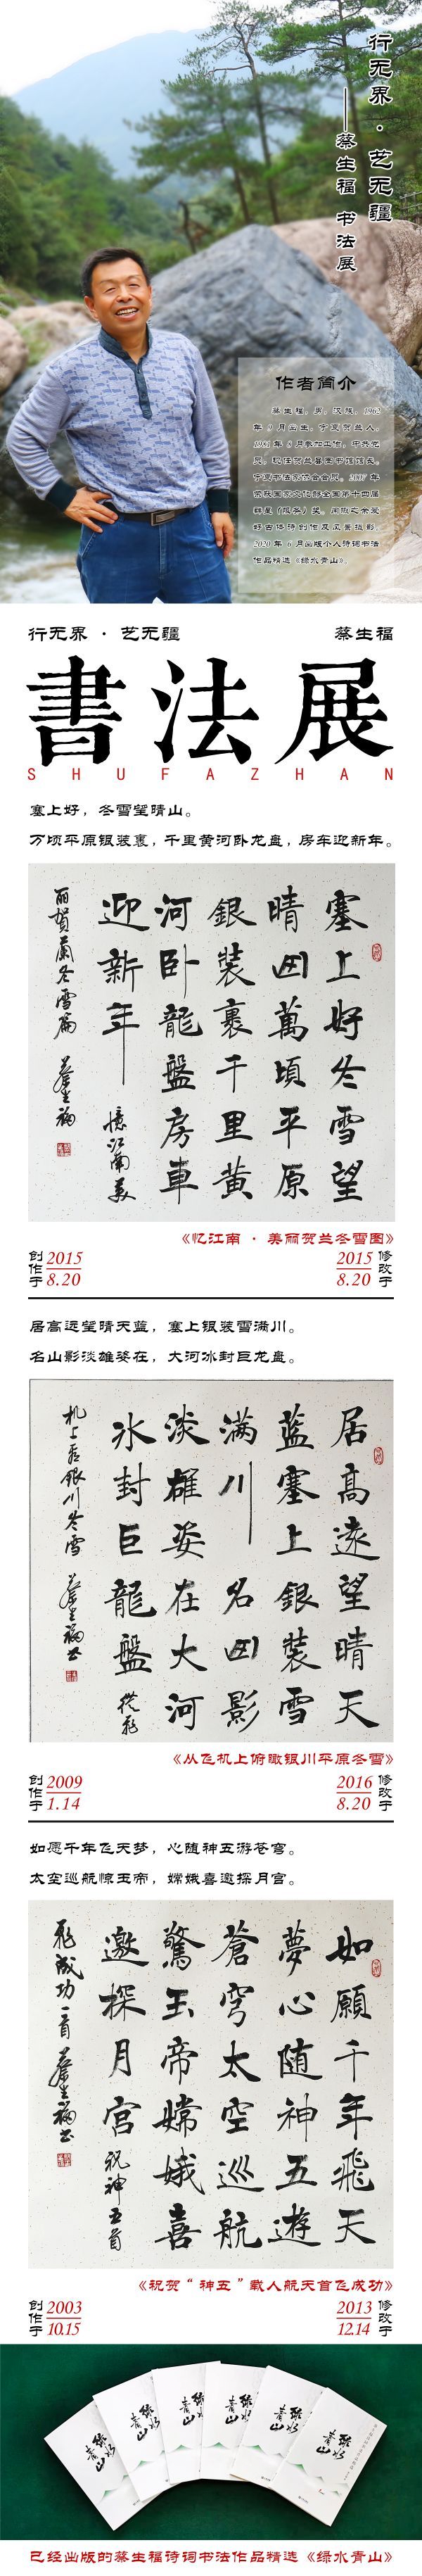 行无界·艺无疆
——蔡生福 书法展
作者简介
蔡生福，男，汉族，1962
年9月出生，宁夏贺兰人，
1981年8月参加工作，中共党
员，现任贺兰县图书馆馆长，
宁夏书法家协会会员。2007年
荣获国家文化部全国第十四届
群星（服务）奖。闲暇之余爱
好古体诗创作及风景摄影。
2020年6月出版个人诗词书法
作品精选《绿水青山》。
行无界 · 艺无疆
蔡生福
書法展
SHUFAZHAN
塞上好，冬雪望晴山。
万顷平原银装裹，千里黄河卧龙盘，房车迎新年。
塞上好冬雪望
晴山萬頃平原
銀裝裹千里黄
河卧龍盤房車
迎新年 憶江南美
丽賀蘭冬雪篇 蔡生福
《忆江南 · 美丽贺兰冬雪图》
创作于 2015 8.20
2015 8.20 修改于
居高远望晴天蓝，塞上银装雪满川。
名山影淡雄姿在，大河冰封巨龙盘。
居高遠望晴天
蓝塞上銀裝雪
满川 名山影
淡雄姿在大河
冰封巨龍盤 從飛
机上看银川冬雪 蔡生福书
《从飞机上俯瞰银川平原冬雪》
创作于 2009 1.14
2016 8.20 修改于
如愿千年飞天梦，心随神五游苍穹。
太空巡航惊玉帝，嫦娥喜邀探月宫。
如願千年飛天
夢心随神五遊
蒼穹太空巡航
驚玉帝嫦娥喜
邀探月宫 祝神五首
飛成功一首 蔡生福书
《祝贺“神五”载人航天首飞成功》
创作于 2003 10.15
2013 12.14 修改于
绿水青山
绿水青山
绿水青山
绿水青山
绿水青山
绿水青山
已经出版的蔡生福诗词书法作品精选《绿水青山》